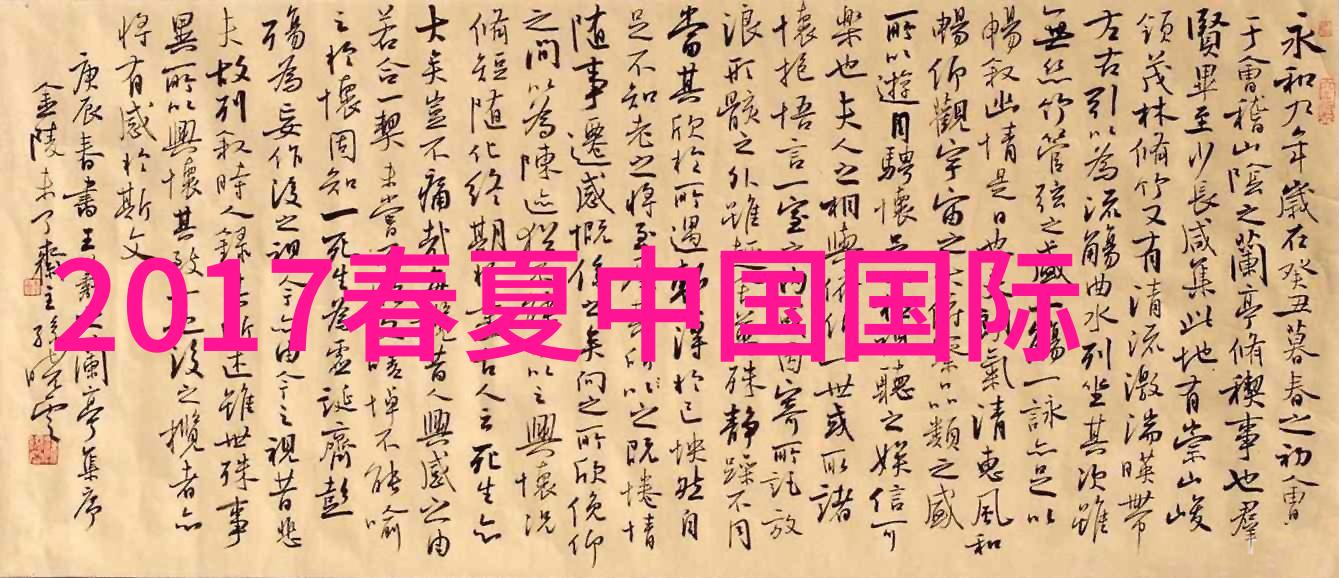 永和九年歲在癸丑暮春之初會
于會稽山陰之蘭亭脩禊事也羣
賢畢至少長咸集此地有崇山峻
領茂林脩竹又有清流激湍暎帶
左右引以為流觴曲水列坐其次雖
無絲竹管弦之盛一觴一詠亦足以
暢敘幽情是日也天朗氣清惠風和
暢仰觀宇宙之大俯察品類之盛
所以遊目騁懷足以視聽之娛信可
樂也夫人之相與俯仰一世或取諸
懷抱悟言一室之內或因寄所託放
浪形骸之外雖趣萬殊靜躁不同
當其欣於所遇暫得於己怏然自
足不知老之將至及其所之既惓情
隨事遷感慨係之矣向之所欣俛仰
之間以為陳迹猶不能不以之興懷況
脩短隨化終期於盡古人云死生亦
大矣豈不痛哉每昔人興感之由
若合一契未嘗不嗟悼不能喻
之於懷固知一死生為虛誕齊彭
殤為妄作後之視今亦由今之視昔悲
夫故列敘時人錄其所述雖世殊事
異所以興懷其致一也後之攬者亦
將有感於斯文
庚辰春書王羲之蘭亭集序
金陵未了齋主孫曉雲
2017春夏中国国际